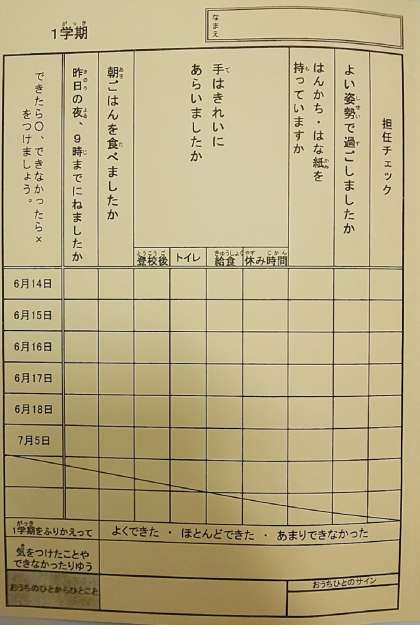 1学期
なまえ
担任チェック
よい姿勢で過ごしましたか
はんかち・はな紙を
持っていますか
手はきれいに
あらいましたか
登校後
トイレ
給食
休み時間
朝ごはんを食べましたか
昨日の夜、9時までにねましたか
できたら〇、できなかったら×
をつけましょう。
6月14日
6月15日
6月16日
6月17日
6月18日
7月5日
1学期をふりかえって
よくできた ・ ほとんどできた ・ あまりできなかった
気をつけたことや
できなかったりゆう
おうちのひとからひとこと
おうちひとのサイン